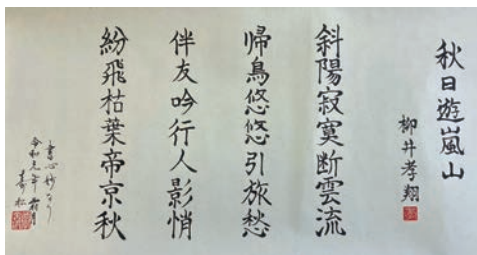 秋日遊嵐山
柳井孝翔
斜陽寂寞断雲流
帰鳥悠悠引旅愁
伴友吟行人影悄
紛飛枯葉帝京秋
書心妙なり
令和元年霜月
寿松